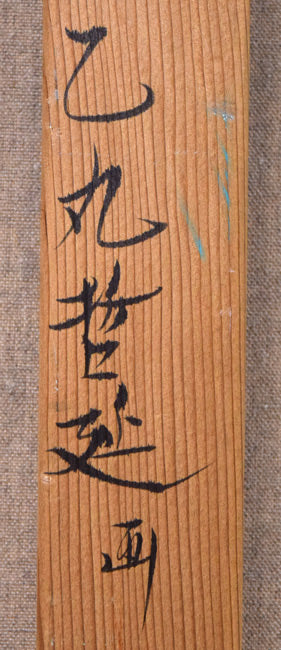 乙丸哲延画